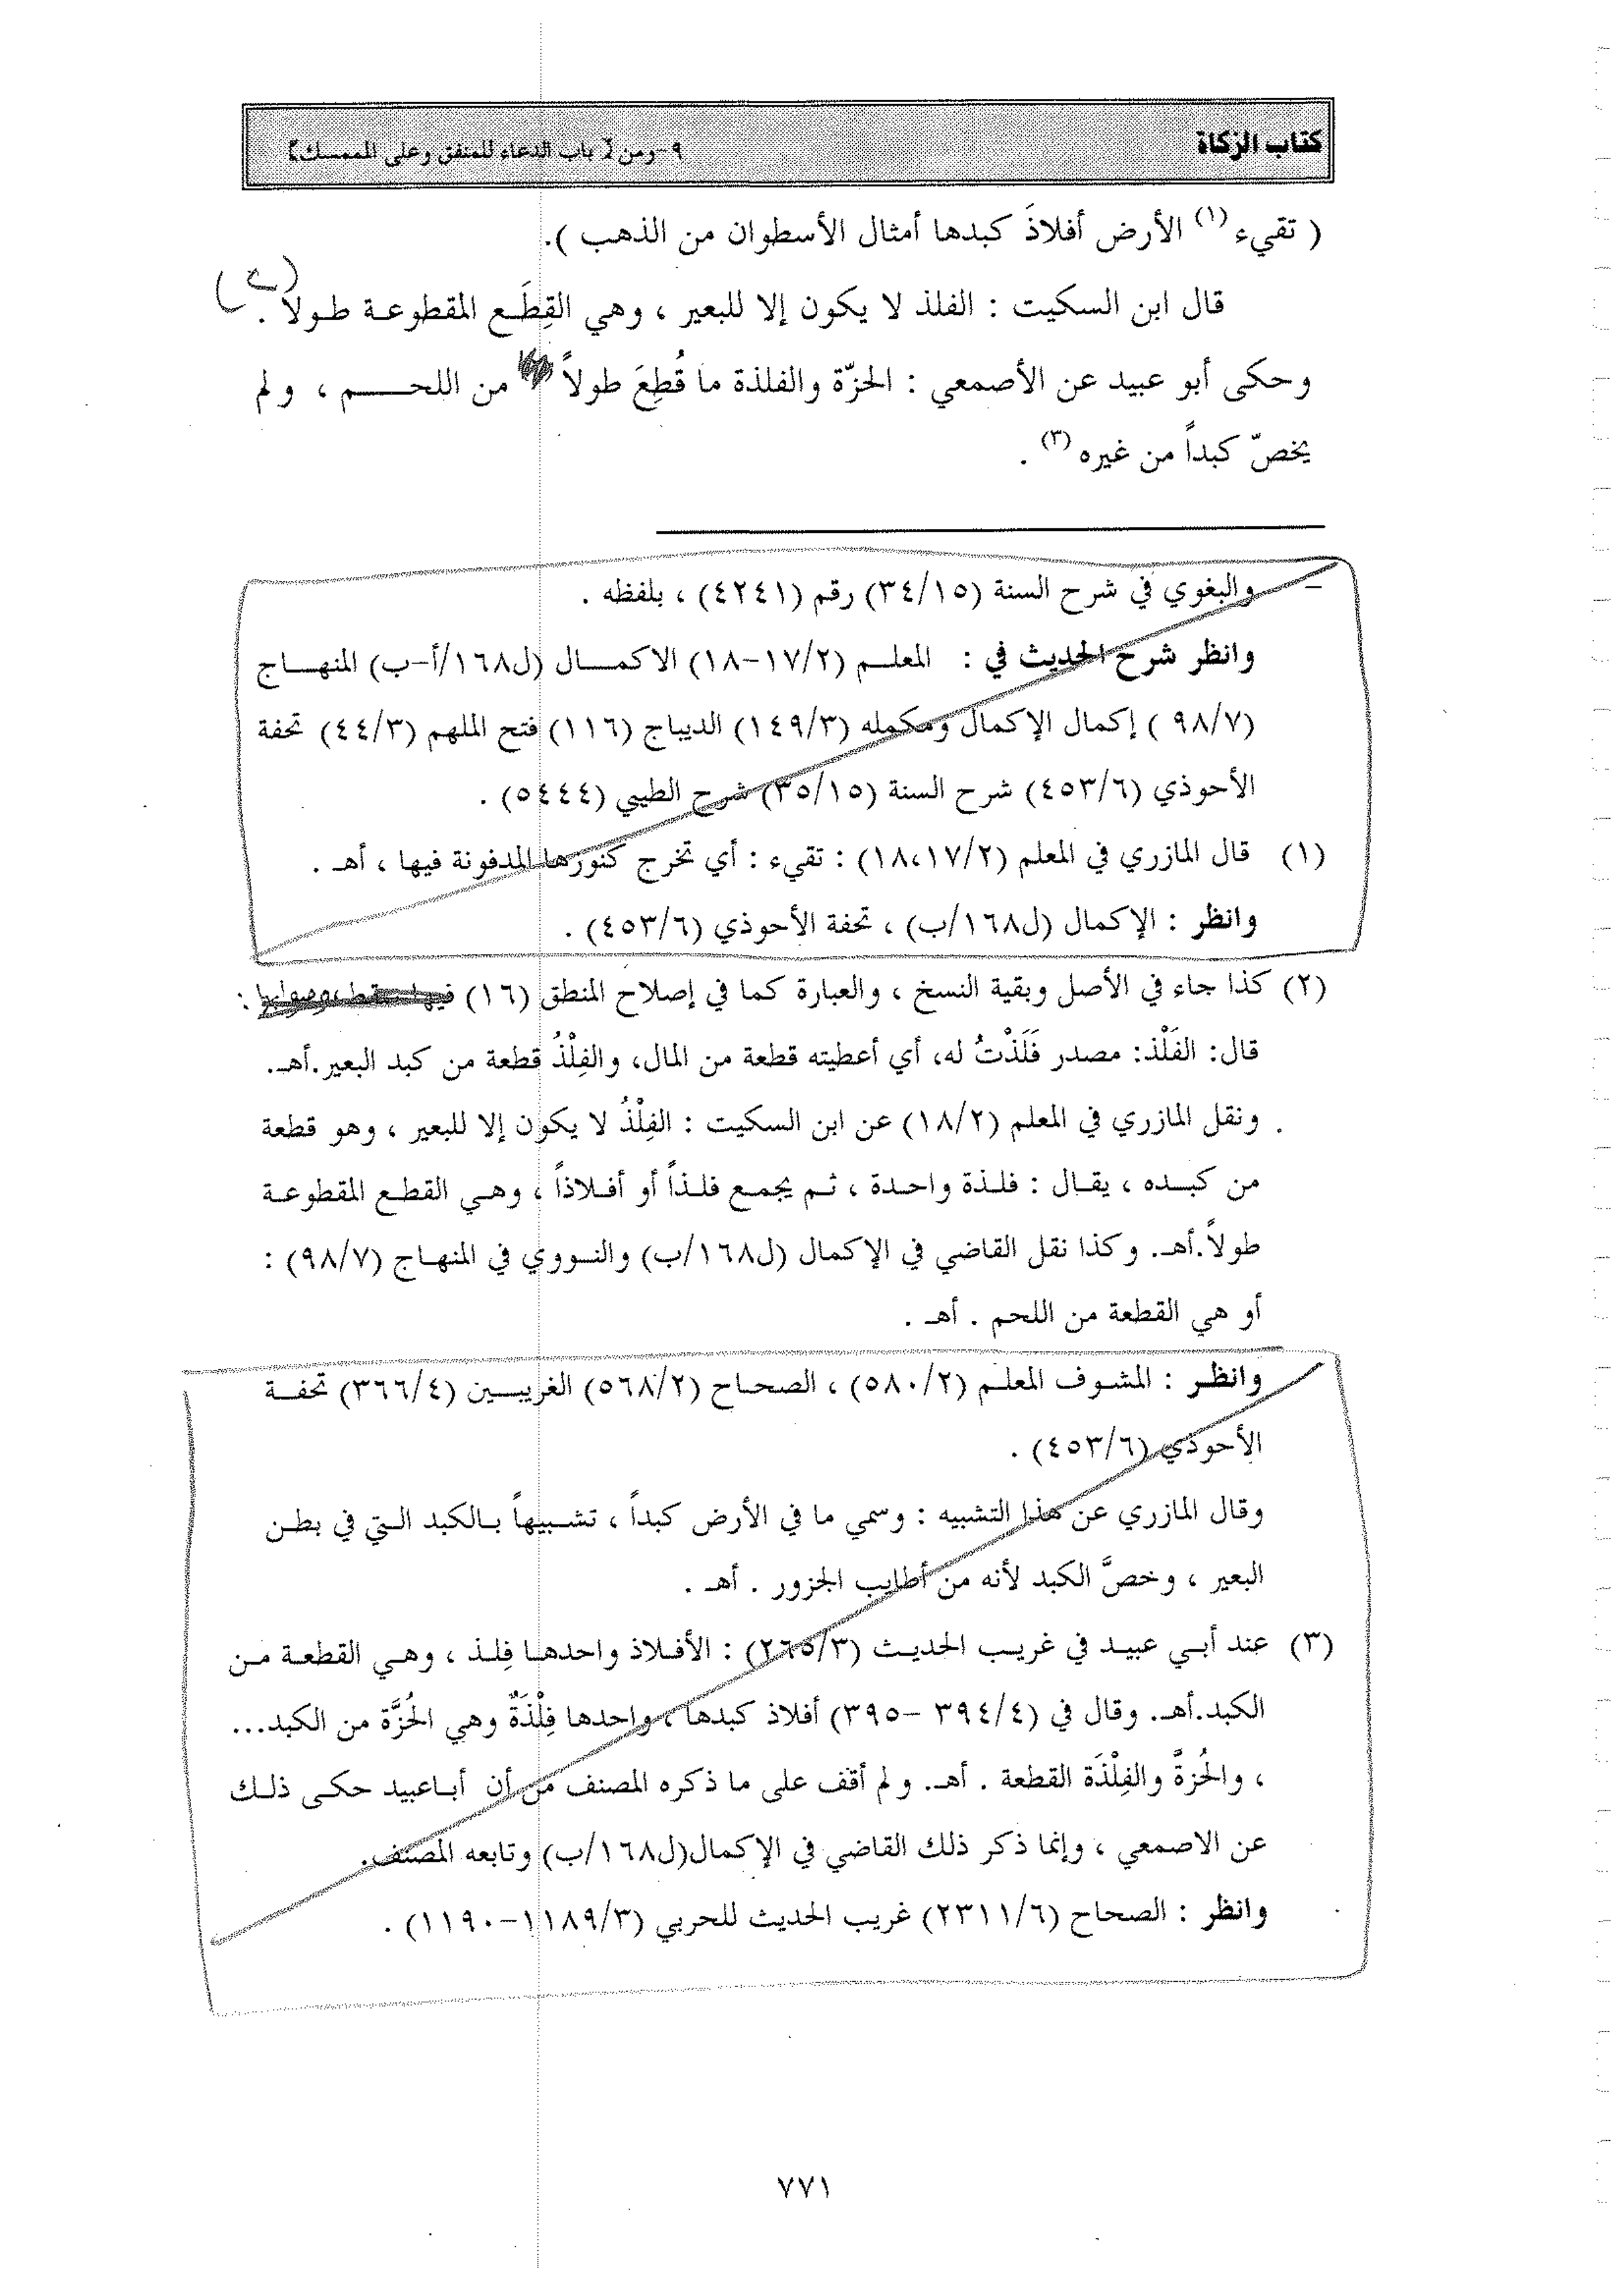 كتاب الزكاة ٩-ومن [ باب الدعاء للمنفق وعلى الممسك]
( تقيء (١) الأرض أفلاذَ كبدها أمثال الأسطوان من الذهب ).
قال ابن السكيت : الفلذ لا يكون إلا للبعير ، وهي القِطَع المقطوعة طولاً . (٢)
وحكى أبو عبيد عن الأصمعي : الحزّة والفلذة ما قُطِعَ طولاً من اللحـــــم ، ولم
يخصّ كبداً من غيره (٣) .
= والبغوي في شرح السنة (٣٤/١٥) رقم (٤٢٤١) ، بلفظه .
وانظر شرح الحديث في : المعلـم (١٧/٢-١٨) الاكمـــال (ل١٦٨/أ-ب) المنهـــاج
(٩٨/٧ ) إكمال الإكمال ومكمله (١٤٩/٣) الديباج (١١٦) فتح الملهم (٤٤/٣) تحفة
الأحوذي (٤٥٣/٦) شرح السنة (٣٥/١٥) شرح الطيبي (٥٤٤٤) .
(١) قال المازري في المعلم (١٨،١٧/٢) : تقيء : أي تخرج كنوزها المدفونة فيها ، أهـ .
وانظر : الإكمال (ل١٦٨/ب) ، تحفة الأحوذي (٤٥٣/٦) .
(٢) كذا جاء في الأصل وبقية النسخ ، والعبارة كما في إصلاح المنطق (١٦) :
قال: الفَلْذ: مصدر فَلَذْتُ له، أي أعطيته قطعة من المال، والفِلْذُ قطعة من كبد البعير.أهـ.
ونقل المازري في المعلم (١٨/٢) عن ابن السكيت : الفِلْذُ لا يكون إلا للبعير ، وهو قطعة
من كبـده ، يقـال : فلـذة واحـدة ، ثـم يجمـع فلـذاً أو أفـلاذاً ، وهـي القطـع المقطوعـة
طولاً.أهـ. وكذا نقل القاضي في الإكمال (ل١٦٨/ب) والنـووي في المنهـاج (٩٨/٧) :
أو هي القطعة من اللحم . أهـ .
وانظـر : المشـوف المعلـم (٥٨٠/٢) ، الصحـاح (٥٦٨/٢) الغريبــين (٣٦٦/٤) تحفــة
الأحوذي (٤٥٣/٦) .
وقال المازري عن هذا التشبيه : وسمي ما في الأرض كبداً ، تشـبيهاً بـالكبد الـتي في بطـن
البعير ، وخصَّ الكبد لأنه من أطايب الجزور . أهـ .
(٣) عند أبـي عبيـد في غريـب الحديـث (٢٦٥/٣) : الأفـلاذ واحدهـا فِلـذ ، وهـي القطعـة مـن
الكبد.أهـ. وقال في (٣٩٤/٤ -٣٩٥) أفلاذ كبدها ، واحدها فِلْذَةٌ وهي الحُزَّة من الكبد...
، والحُزةً والفِلْذَة القطعة . أهـ. ولم أقف على ما ذكره المصنف من أن أبـاعبيد حكـى ذلـك
عن الاصمعي ، وإنما ذكر ذلك القاضي في الإكمال(ل١٦٨/ب) وتابعه المصنف.
وانظر : الصحاح (٢٣١١/٦) غريب الحديث للحربي (١١٨٩/٣-١١٩٠) .
٧٧١